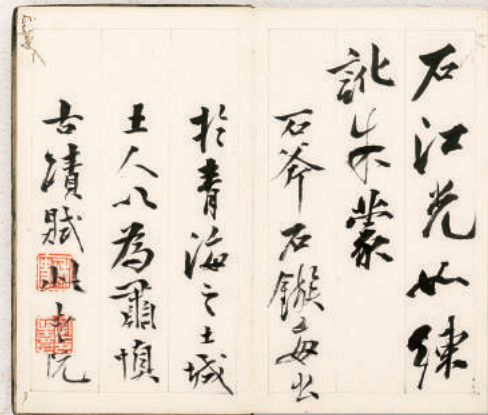 石江光如練
訛朱蒙
石斧石鏃每出
於青海之土城
土人以為肅慎
古蹟賦此